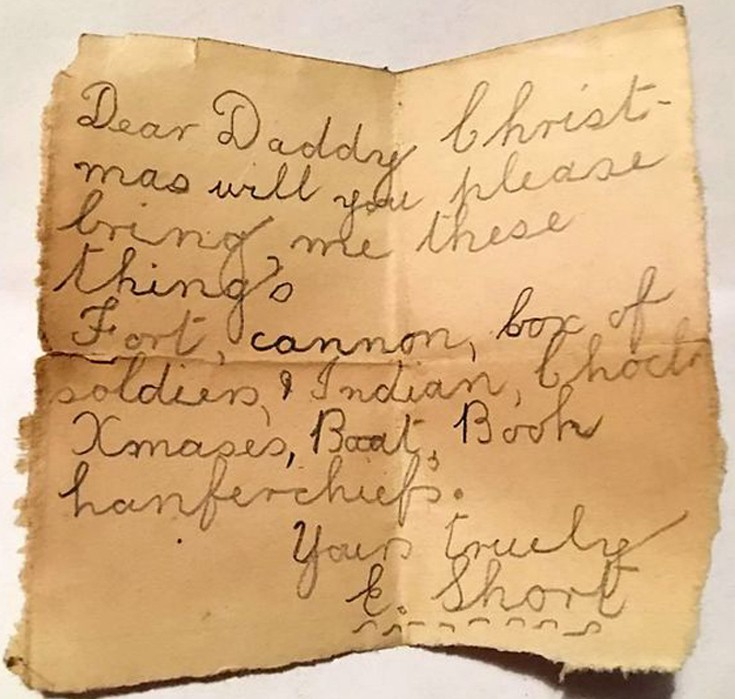 Dear Daddy Christ-
mas will you please
bring me these
things
Fort, cannon, box of
soldiers, & Indian, Choct
Xmases, Boat, Book
hanferchiefs.
Yours truely
E. Short